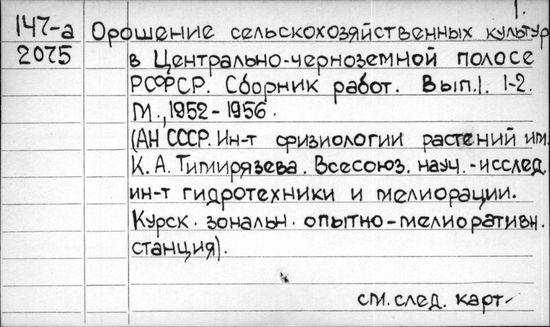 1.
147-а Орошение сельскохозяйственных культур
2075 в Центрально-черноземной полосе
РСФСР. Сборник работ. Вып.1. 1-2.
М., 1952-1956.
(АН СССР. Ин-т физиологии растений им.
К. А. Тимирязева. Всесоюз. науч.-исслед.
ин-т гидротехники и мелиорации.
Курск. зональн. опытно-мелиоративн.
станция).
см. след. карт.